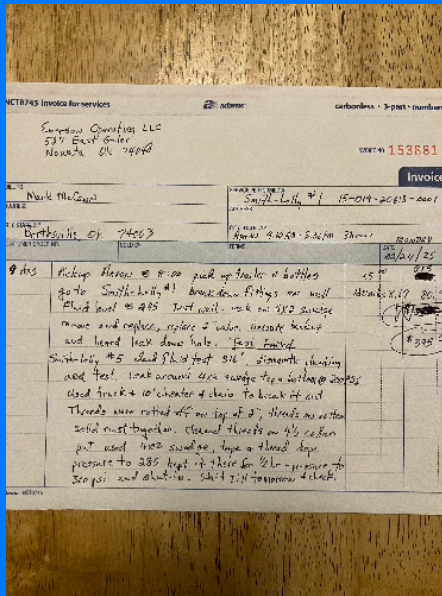 NCT8745 Invoice for services
adams
carbonless • 3-part • number
Emerson Operating LLC
537 East Galer
Nowata Ok 74048
INVOICE NO. 153881
Invoice
Mark McCann
Smith-Lolly #1 15-019-20613-0001
Bartlesville, Ok 74003
SOLD BY
TERMS
DATE
MONDAY
02/24/25
9 hrs Pickup @ 8:00 pick up trailer & bottles
go to Smith-Lolly #1 break down fittings on well
fluid level @ 245 Test well - leak on 4X2 swedge
remove and replace, replace 2" valve,
and heard leak down hole. Test Failed
Smith-Lolly #5 fluid test 316'. dismantle plumbing
and test. Leak around 4x2 swedge top & bottom @ 200 PSI
Used truck & 10' cheater & chain to break it out
Threads were rotted off on top of 2", threads on bottom
solid rust together. Cleaned threads on 4½ collar
put used 4x2 swedge, tape & thread dope
pressure to 285 kept it there for ½ hr - pressure to
300 psi and shut-in. Shut Till tomorrow & check.
$395